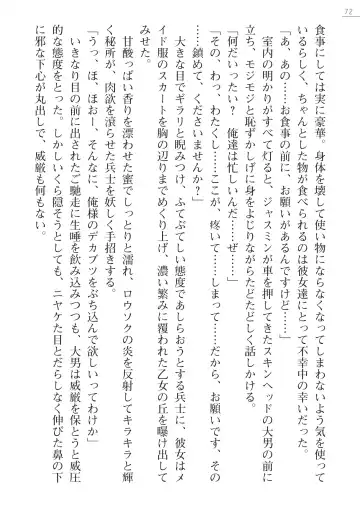 72
食事にしては実に豪華。身体を壊して使い物にならなくなってしまわないよう気を使って
いるらしく、ちゃんとした物が食べられるのは彼女達にとって不幸中の幸いだった。
「あ、あの……お食事の前に、お願いがあるんですけど……」
室内の明かりがすべて灯ると、ジャスミンが車を押してきたスキンヘッドの大男の前に
立ち、モジモジと恥ずかしげに身をよじりながらたどたどしく話しかける。
「何だいったい？　俺達は忙しいんだ……ぜ……」
「その、わっ、わたくし……ここが、疼いて……しまって……お、お願いです……
……鎮めて、くださいませんか？」
大きな目でギラリと睨みつけ、ふてぶてしい態度であしらおうとする兵士に、彼女はメ
イド服のスカートを胸の辺りまでめくり上げ、濃い繁みに覆われた乙女の丘を曝け出して
みせた。
甘酸っぱい香りを漂わせた蜜でしっとりと濡れ、ロウソクの炎を反射してキラキラと輝
く秘所が、肉欲を滾らせた兵士を妖しく手招きする。
「うっ、ほ、ほおー、そんなに、俺様のデカブツをぶち込んで欲しいってわけか」
いきなり目の前に現れたご馳走に生唾を飲み込みつつも、大男は威厳を保とうと威圧
的な態度をとった。しかしいくら隠そうとしても、ニヤケた目とだらしなく伸びた鼻の下
に邪な下心が丸出しで、威厳も何もない。